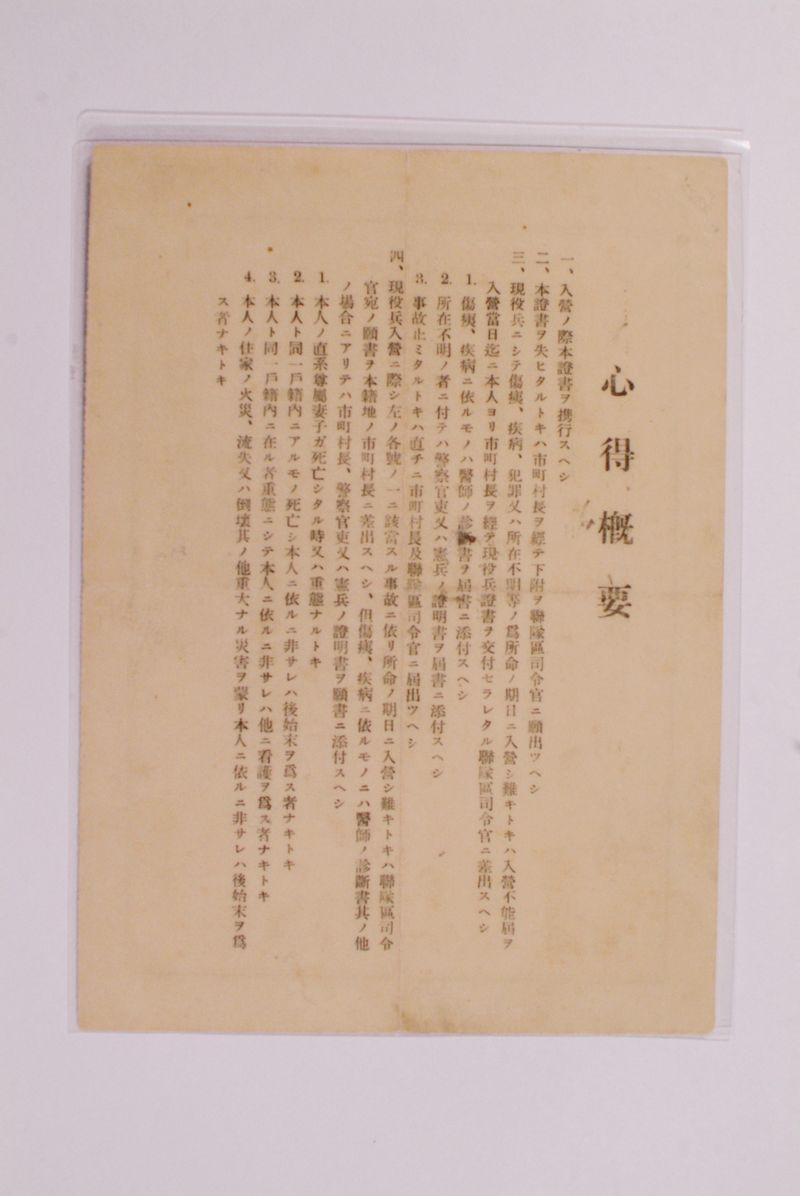 心得概要
一、入營ノ際本證書ヲ携行スヘシ
二、本證書ヲ失ヒタルトキハ市町村長ヲ經テ下附ヲ聯隊區司令官ニ願出ツヘシ
三、現役兵ニシテ傷痍、疾病、犯罪又ハ所在不明等ノ爲所命ノ期日ニ入營シ難キトキハ入營不能屆ヲ
入營當日迄ニ本人ヨリ市町村長ヲ經テ現役兵證書ヲ交付セラレタル聯隊區司令官ニ差出スヘシ
1. 傷痍、疾病ニ依ルモノハ醫師ノ診斷書ヲ屆書ニ添付スヘシ
2. 所在不明ノ者ニ付テハ警察官吏又ハ憲兵ノ證明書ヲ屆書ニ添付スヘシ
3. 事故止ミタルトキハ直チニ市町村長及聯隊區司令官ニ屆出ツヘシ
四、現役兵入營ニ際シ左ノ各號ノ一ニ該當スル事故ニ依リ所命ノ期日ニ入營シ難キトキハ聯隊區司令
官宛ノ願書ヲ本籍地ノ市町村長ニ差出スヘシ、但傷痍、疾病ニ依ルモノニハ醫師ノ診斷書其ノ他
ノ場合ニアリテハ市町村長、警察官吏又ハ憲兵ノ證明書ヲ願書ニ添付スヘシ
1. 本人ノ直系尊屬妻子ガ死亡シタル時又ハ重態ナルトキ
2. 本人ト同一戶籍內ニアルモノ死亡シ本人ニ依ルニ非サレハ後始末ヲ爲ス者ナキトキ
3. 本人ト同一戶籍內ニ在ル者重態ニシテ本人ニ依ルニ非サレハ他ニ看護ヲ爲ス者ナキトキ
4. 本人ノ住家ノ火災、流失又ハ倒壞其ノ他重大ナル災害ヲ蒙リ本人ニ依ルニ非サレハ後始末ヲ爲
ス者ナキトキ